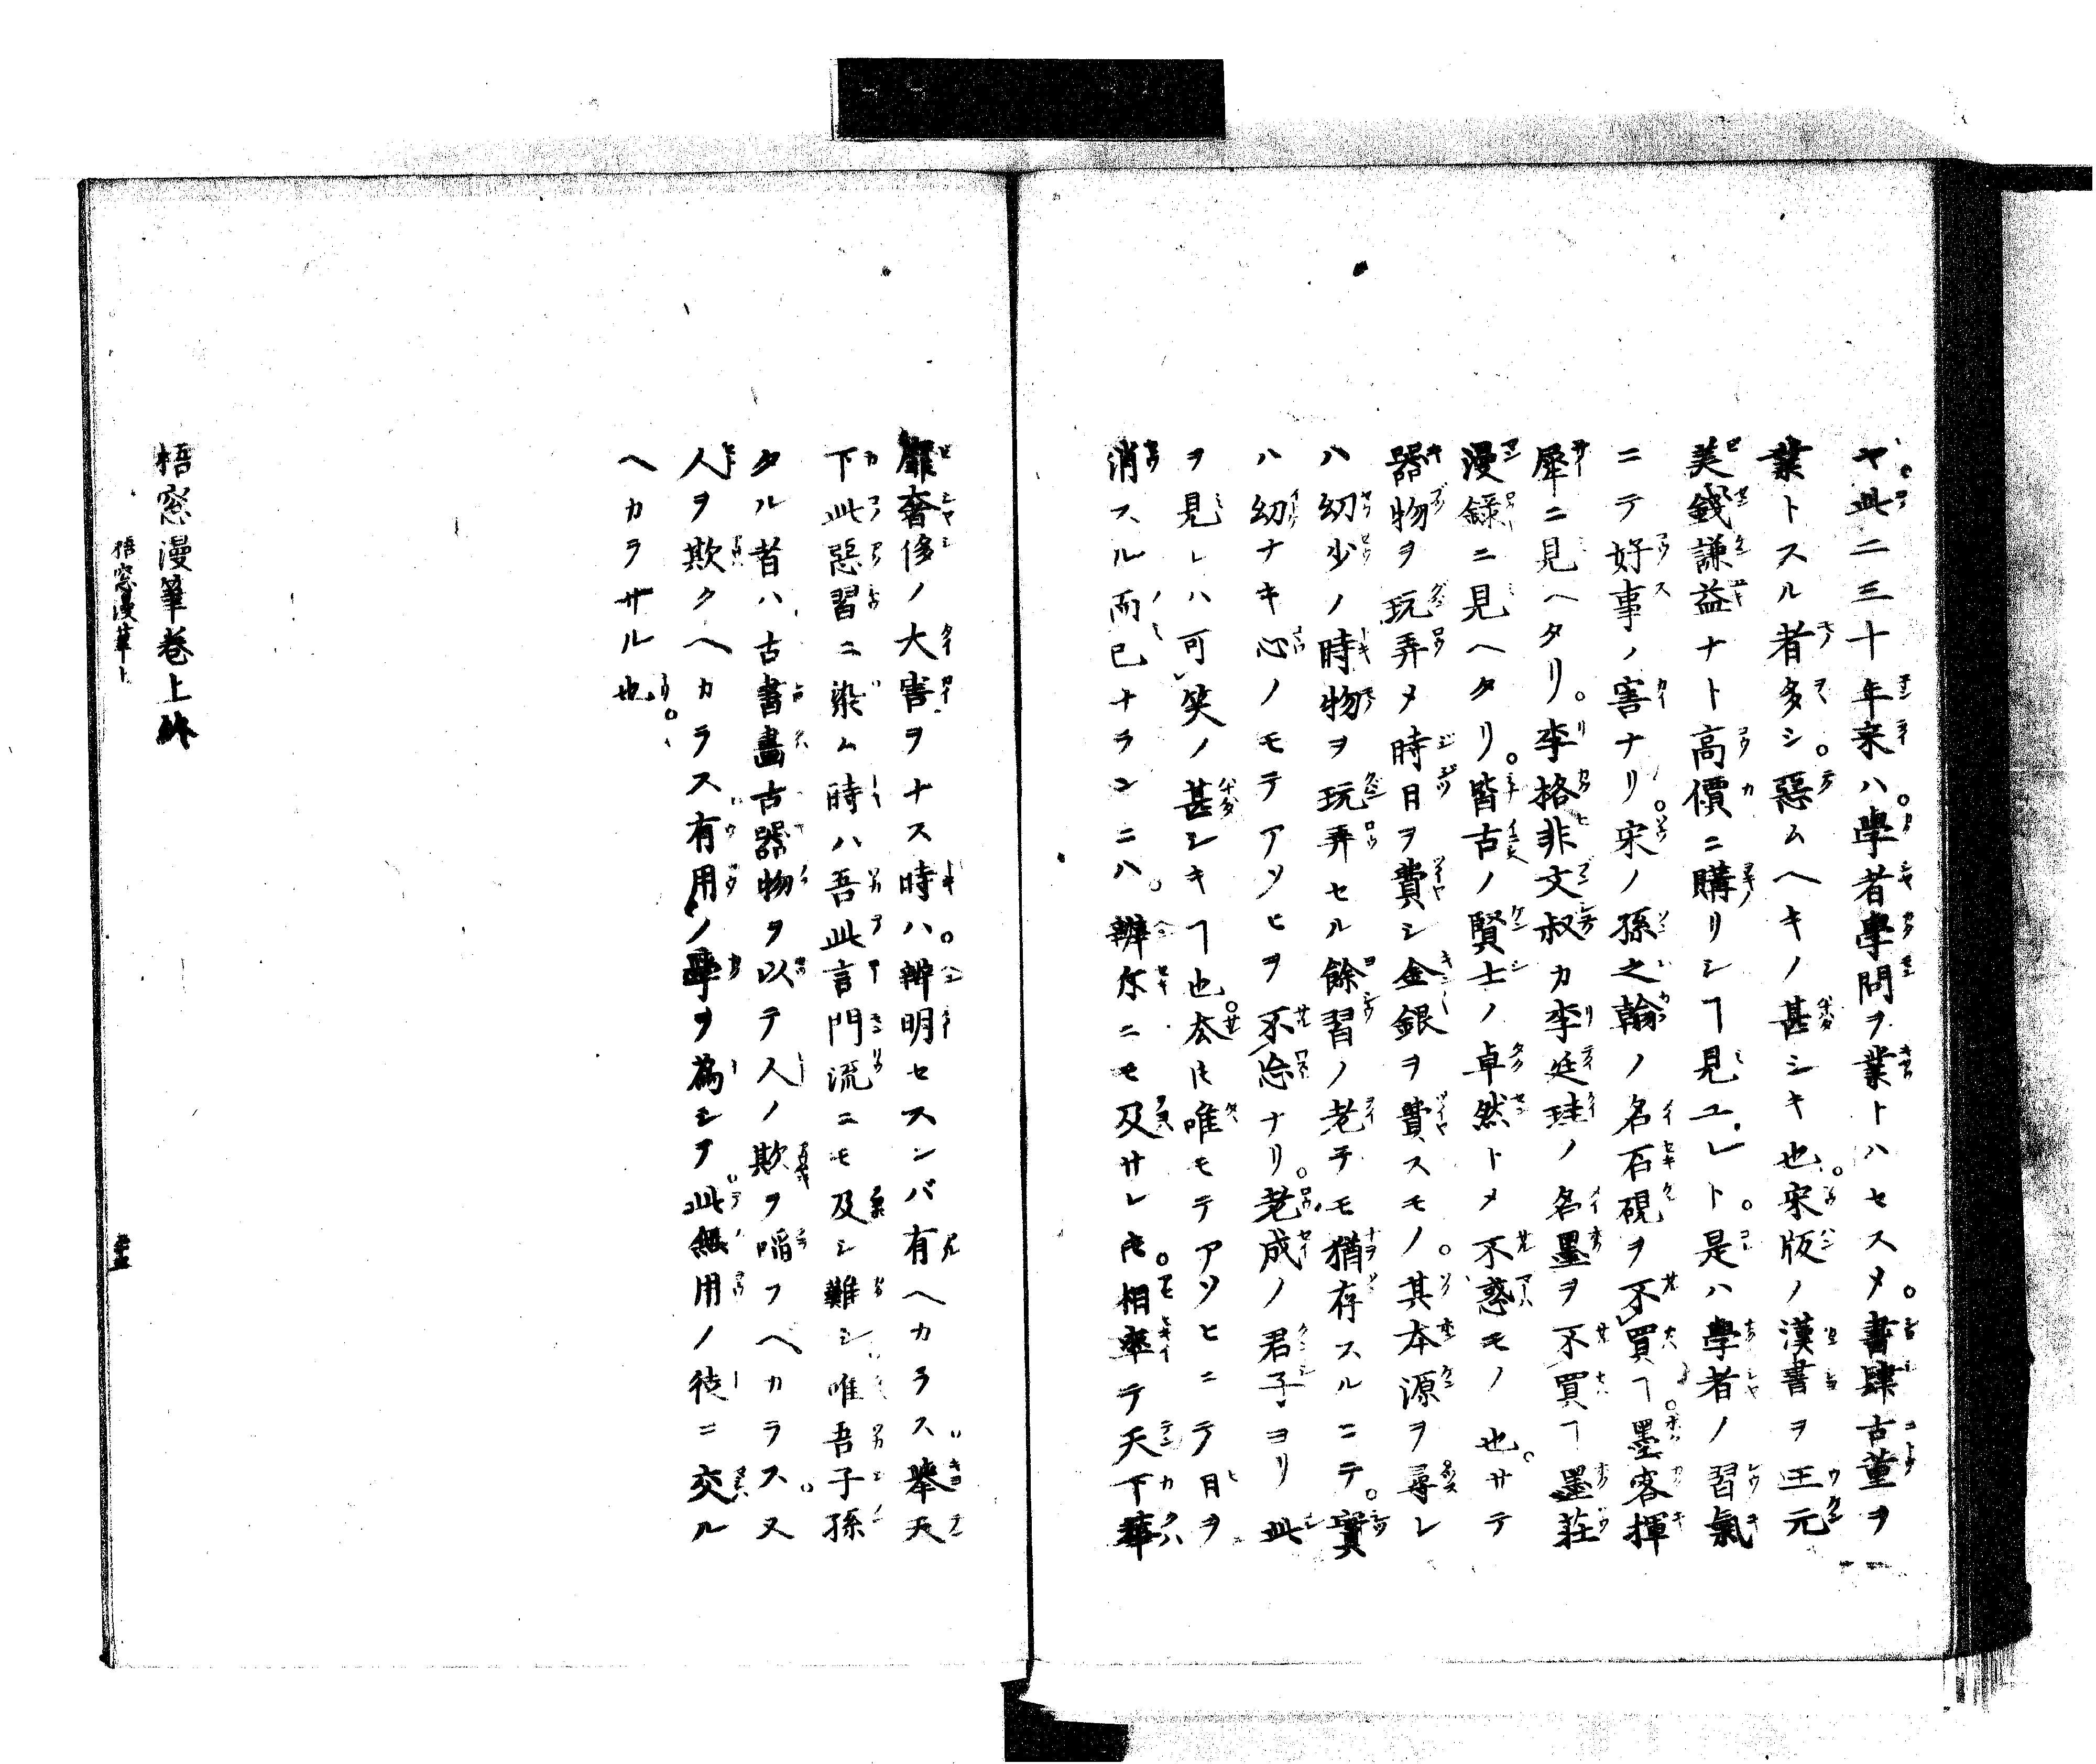 ヤ此二三十年来ハ學者學問ヲ業トハセスメ書肆古董ヲ
業トスル者多シ惡ムヘキノ甚シキ也宋版ノ漢書ヲ王元
美錢謙益ナト高價ニ購リシヿ見ユレト是ハ學者ノ習氣
ニテ好事ノ害ナリ宋ノ孫之翰ノ名石硯ヲ不買ヿ墨客揮
犀ニ見ヘタリ李格非文叔カ李廷珪ノ名墨ヲ不買ヿ墨莊
漫録ニ見ヘタリ皆古ノ賢士ノ卓然トメ不惑モノ也サテ
器物ヲ玩弄メ時日ヲ費シ金銀ヲ費スモノ其本源ヲ尋レ
ハ幼少ノ時物ヲ玩弄セル餘習ノ老テモ猶存スルニテ實
ハ幼ナキ心ノモテアソヒヲ不忘ナリ老成ノ君子ヨリ此
ヲ見レハ可笑ノ甚シキヿ也去𪜈唯モテアソヒニテ日ヲ
消スル而已ナランニハ辨尓ニモ及サレ𪜈相率テ天下華
靡奢侈ノ大害ヲナス時ハ辨明セスンバ有ヘカラス舉天
下此惡習ニ染ム時ハ吾此言門流ニモ及シ難シ唯吾子孫
タル者ハ古書畫古器物ヲ以テ人ノ欺ヲ啗フヘカラス又
人ヲ欺クヘカラス有用ノ學ヲ為シテ此無用ノ徒ニ交ル
ヘカラサル也
梧窓漫筆巻上終
梧窓漫筆上